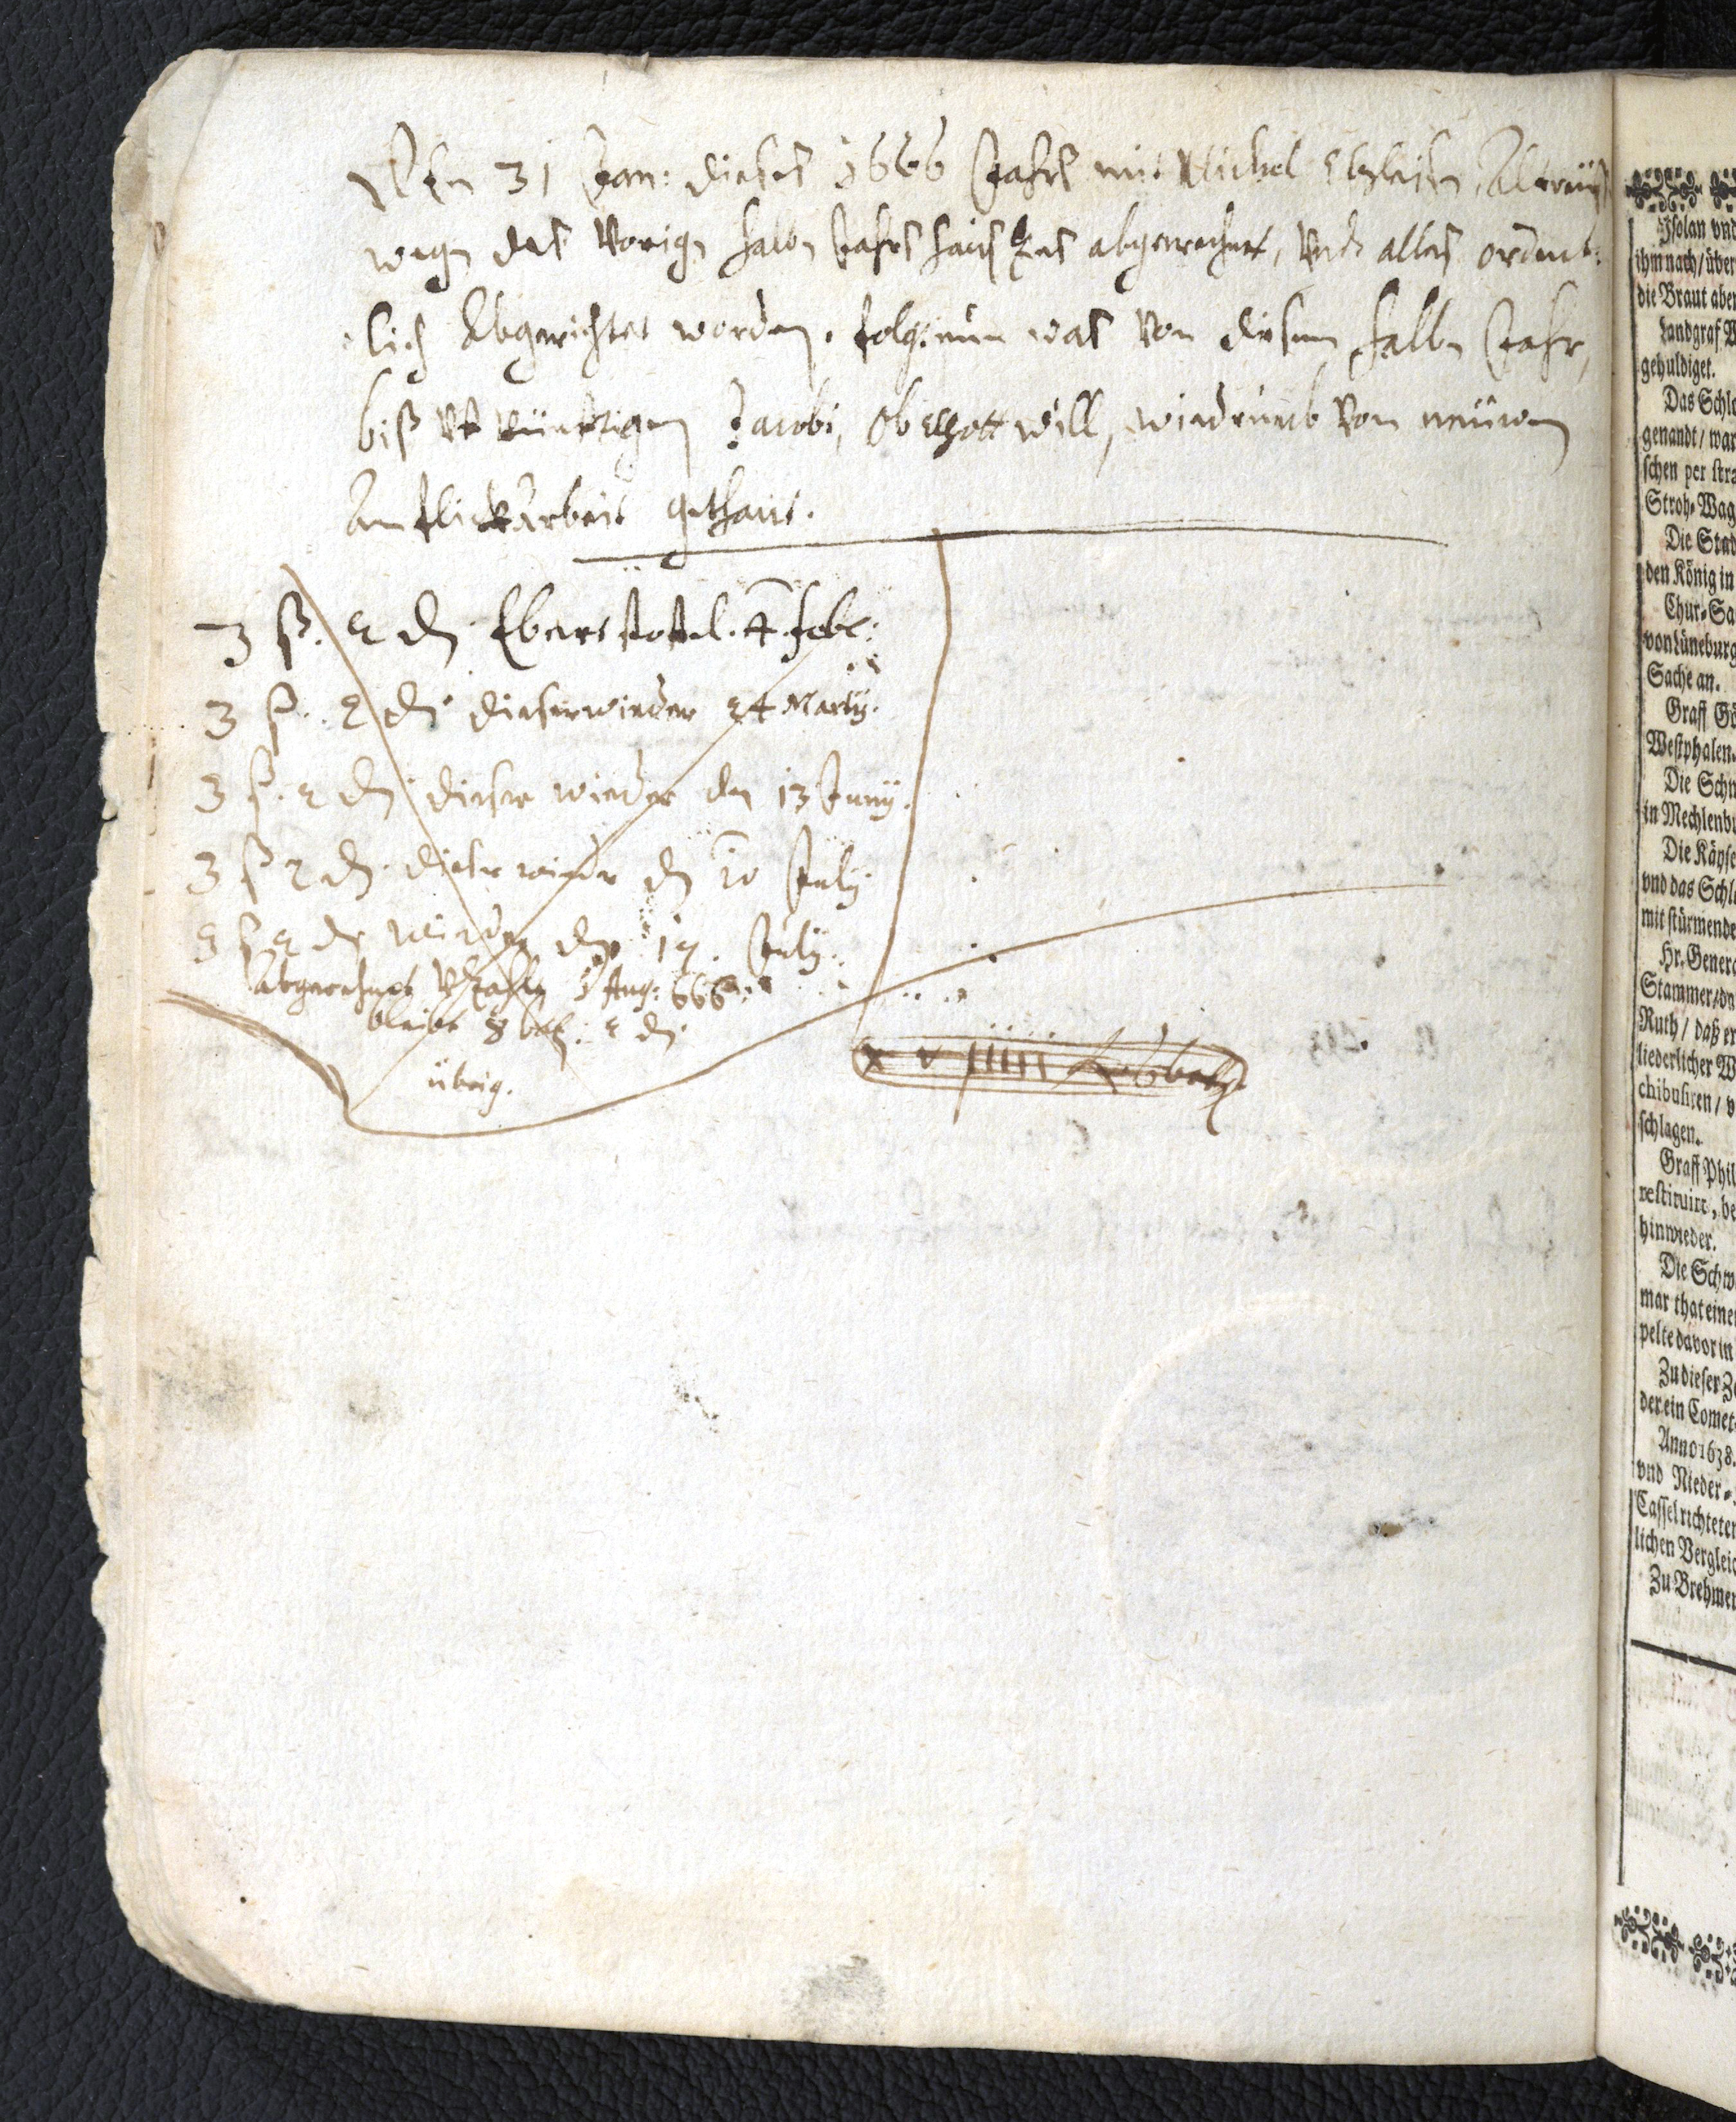 Den 31 Jan: dieses 1666 Jahrs mit Michel
wegen des Vorigen halben Jahrs hauß Zins abgerechnet, Vnd alles ordent-
lich Abgerichtet worden. folgt nun was Von diesem halben Jahr,
biß vf künftigen Jacobi, Ob Gott will, wiederumb Von neuwen
An flickarbeit gethan.
3 ß. 2 d. 4. febr:
3 ß. 2 d. dieser wieder 24 Martij.
3 ß. 2 d. dieser wieder den 13 Junij.
3 ß 2 d. dieser wieder den 10 Julij
3 ß 2 d. wieder den 19. Julij.
Abgerechnet 5 Aug: 666.
bleibt 8 batz: 2 d.
übrig.
x v iiiii 6 batz
Isolan vnd
ihm nach/ über
die Braut aber
Landgraf W
gehuldiget.
Das Schlo
genandt/ war
schen per stra
Stroh-Wag
Die Stad
den König in
Chur-Sa
von Lüneburg
Sache an.
Graff Gö
Westphalen.
Die Schw
in Mechlenbu
Die Käyse
vnd das Schlo
mit stürmende
Hr. Genera
Stammer/ da
Ruth/ daß er
liederlicher W
chibusiren/ v
schlagen.
Graff Phil
restituirt, be
hinwieder.
Die Schw
mar that eine
pelte davor in
Zu dieser Ze
der ein Comet
Anno 1638.
vnd Nieder-
Cassel richteten
lichen Vergleic
Zu Brehmen